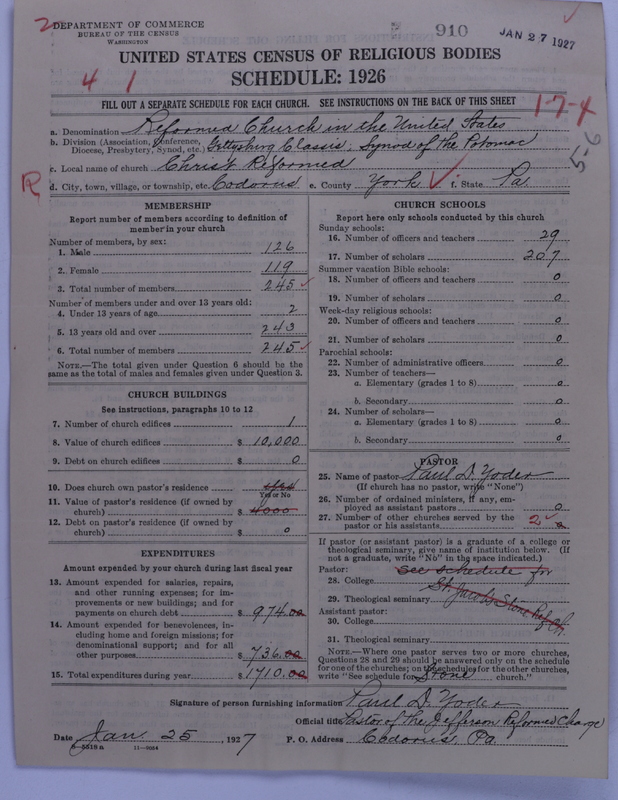 DEPARTMENT OF COMMERCE
BUREAU OF THE CENSUS
WASHINGTON
910
JAN 27 1927
UNITED STATES CENSUS OF RELIGIOUS BODIES
SCHEDULE: 1926
4 1
FILL OUT A SEPARATE SCHEDULE FOR EACH CHURCH. SEE INSTRUCTIONS ON THE BACK OF THIS SHEET
1-7-4
5-6
a. Denomination Reformed Church in the United States
b. Division (Association, Conference, Diocese, Presbytery, Synod, etc.) Gettysburg Classis, Synod of the Potomac
c. Local name of church Christ Reformed
R d. City, town, village, or township, etc. Codorus e. County York f. State Pa.
MEMBERSHIP
Report number of members according to definition of
member in your church
Number of members, by sex:
1. Male 126
2. Female 119
3. Total number of members 245
Number of members under and over 13 years old:
4. Under 13 years of age 2
5. 13 years old and over 243
6. Total number of members 245
NOTE.—The total given under Question 6 should be
same as the total of males and females given under Question 3.
CHURCH BUILDINGS
See instructions, paragraphs 10 to 12
7. Number of church edifices 1
8. Value of church edifices $ 10,000
9. Debt on church edifices $ 0
10. Does church own pastor's residence
Yes or No
11. Value of pastor's residence (if owned by
church) $ 4000
12. Debt on pastor's residence (if owned by
church) $ 0
EXPENDITURES
Amount expended by your church during last fiscal year
13. Amount expended for salaries, repairs,
and other running expenses; for im-
provements or new buildings; and for
payments on church debt $ 974.00
14. Amount expended for benevolences, in-
cluding home and foreign missions; for
denominational support; and for all
other purposes $ 736.00
15. Total expenditures during year $ 1710.00
CHURCH SCHOOLS
Report here only schools conducted by this church
Sunday schools:
16. Number of officers and teachers 29
17. Number of scholars 207
Summer vacation Bible schools:
18. Number of officers and teachers 0
19. Number of scholars 0
Week-day religious schools:
20. Number of officers and teachers 0
21. Number of scholars 0
Parochial schools:
22. Number of administrative officers 0
23. Number of teachers—
a. Elementary (grades 1 to 8) 0
b. Secondary 0
24. Number of scholars—
a. Elementary (grades 1 to 8) 0
b. Secondary 0
PASTOR
25. Name of pastor Paul D. Yoder
(If church has no pastor, write "None")
26. Number of ordained ministers, if any, em-
ployed as assistant pastors 0
27. Number of other churches served by the
pastor or his assistants 2
If pastor (or assistant pastor) is a graduate of a college or
theological seminary, give name of institution below. (If
not a graduate, write "No" in the space indicated.)
Pastor: See schedule for
28. College St. Jacobs Stone Ref. Ch.
29. Theological seminary
Assistant pastor:
30. College
31. Theological seminary
NOTE.—Where one pastor serves two or more churches,
Questions 28 and 29 should be answered only on the schedule
for one of the churches; on the schedules for the other churches,
write "See schedule for Stone church."
Signature of person furnishing information Paul D. Yoder
Official title Pastor of the Jefferson Reformed Charge
Date Jan. 25, 1927 P. O. Address Codorus, Pa.
8-5519 a 11-9084